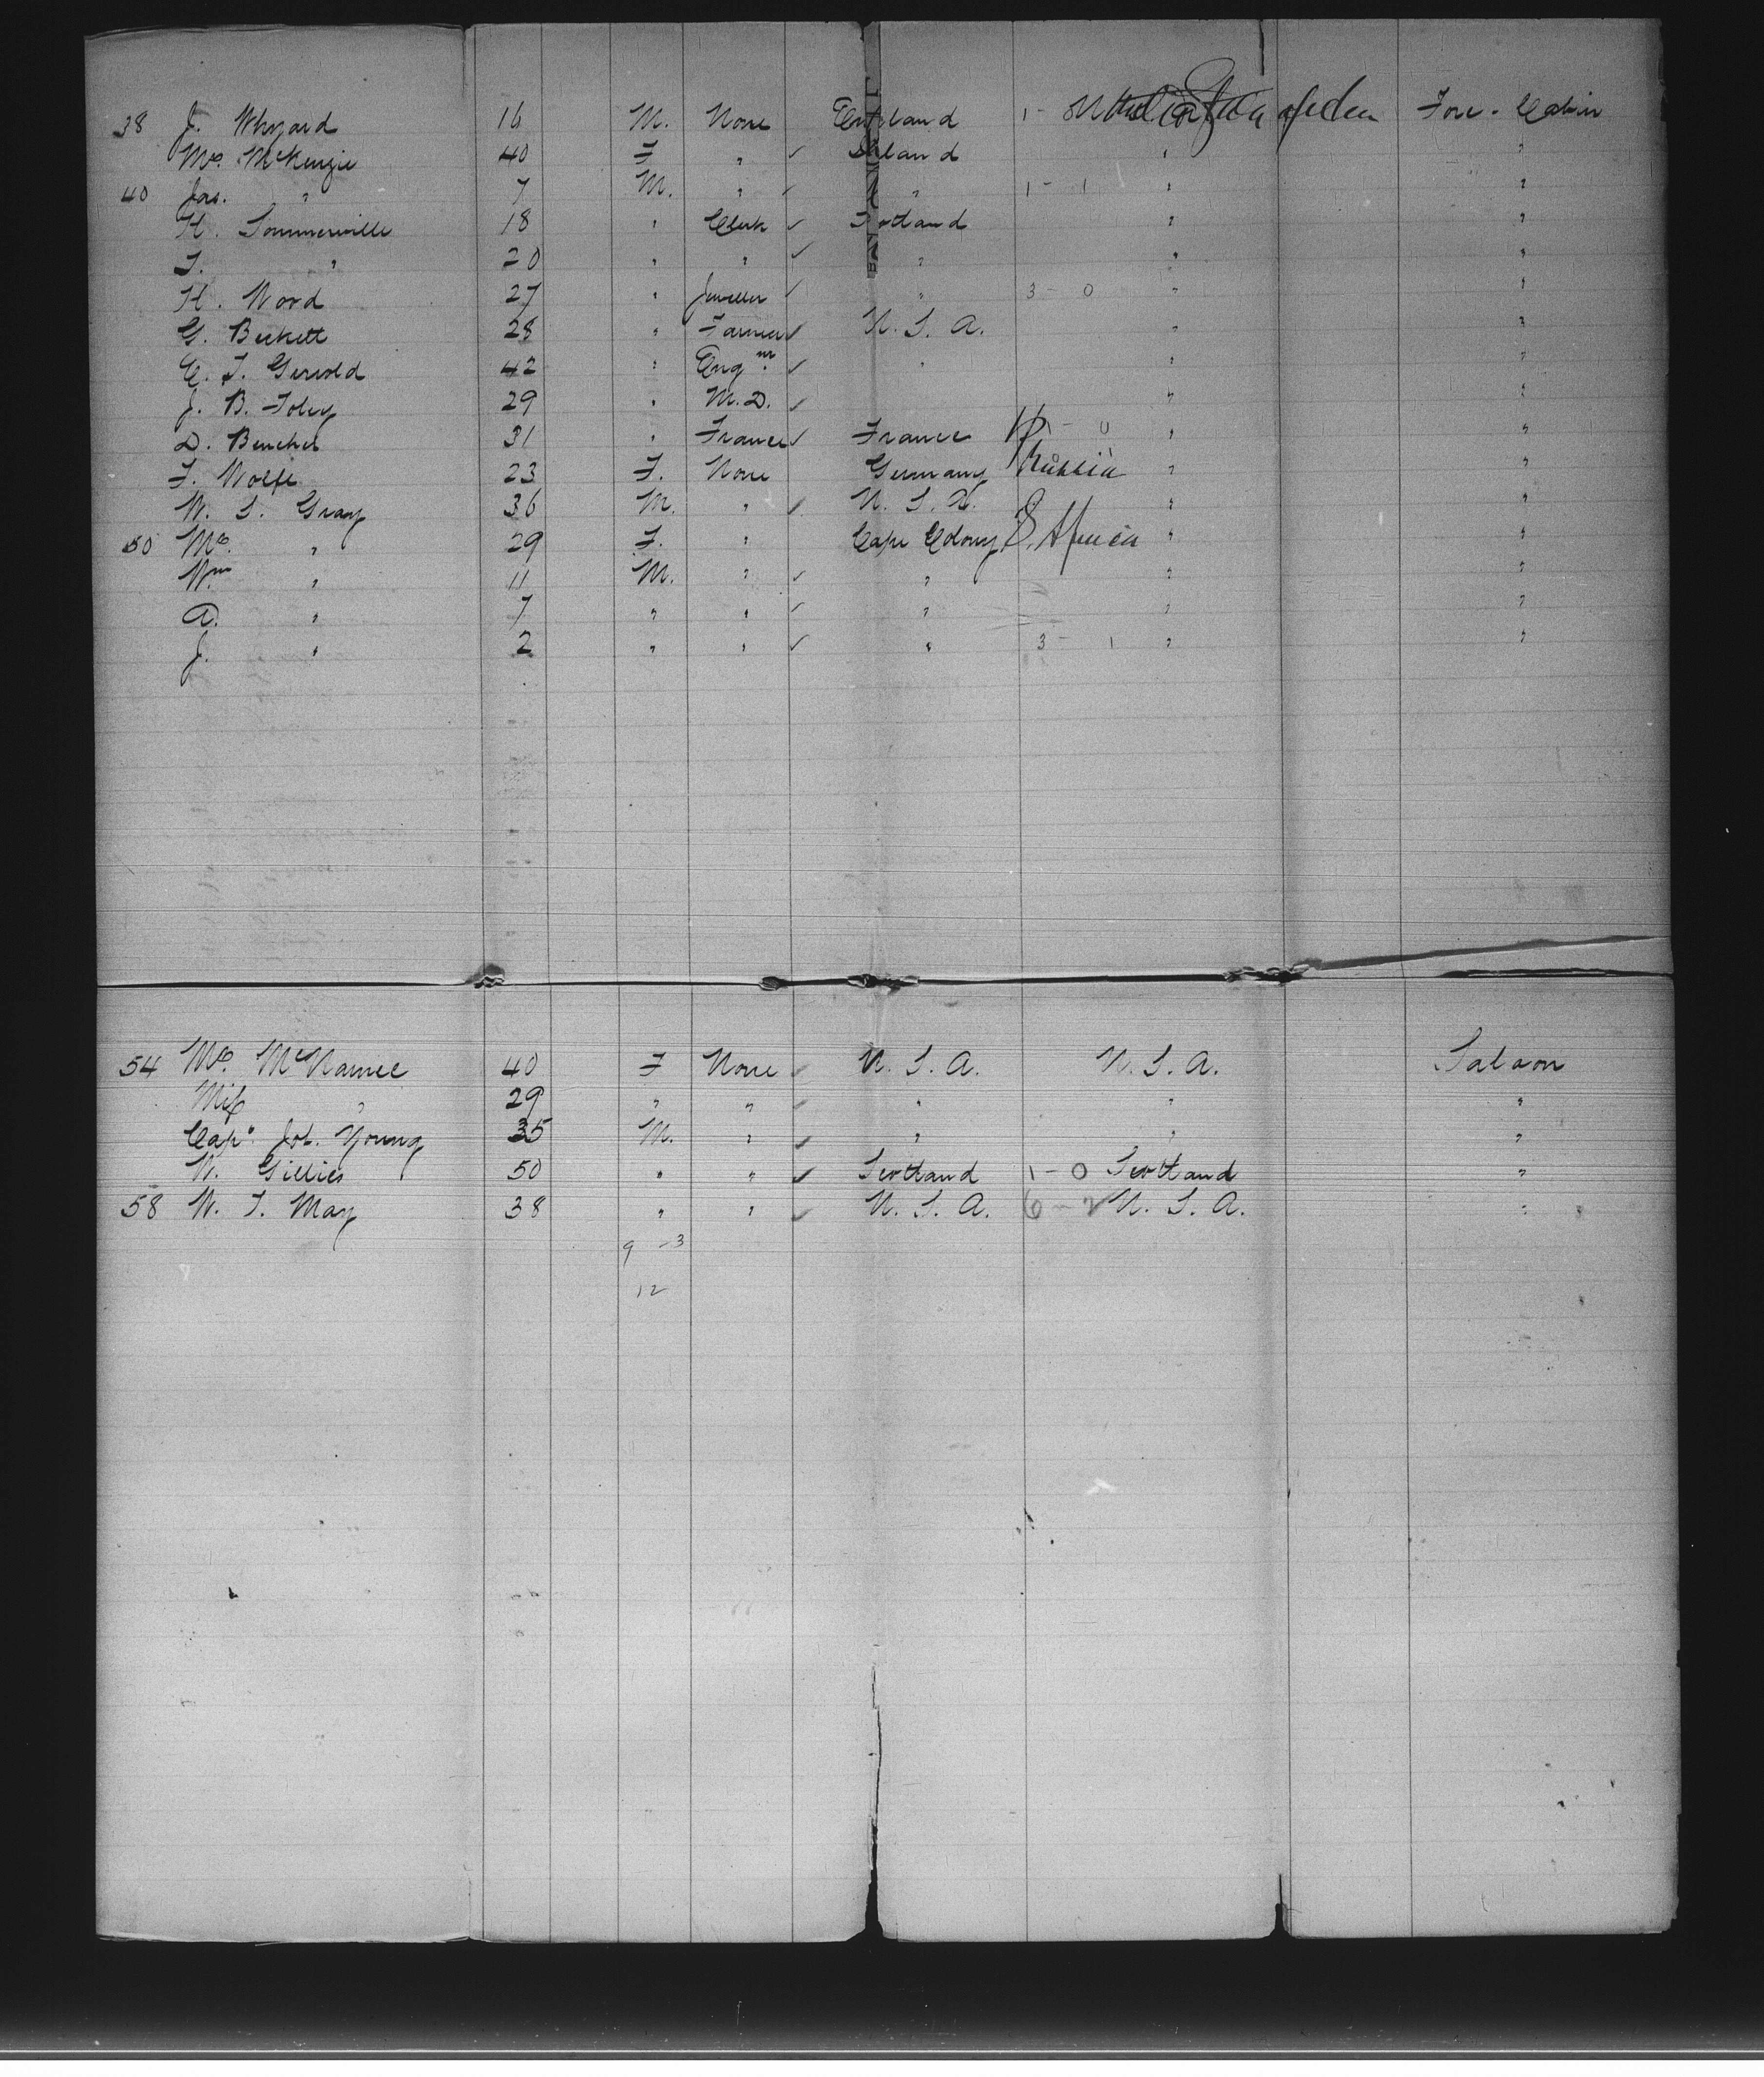 38 J. Whyard 16 M. None England 1 - Fore-Cabin
Mrs. McKenzie 40 F " ✓ "
40 Jas. " 7 M. " ✓ " 1 - 1 " "
H. Sommerville 18 " Clerk ✓ Scotland " "
T. " 20 " " ✓ " " "
H. Wood 27 " Jeweller ✓ " 3 - 0 " "
G. Beckett 28 " Farmer ✓ U. S. A. " "
C. F. Gerold 42 " Engnr. ✓ " " "
J. B. Foley 29 " M.D. ✓ " "
D. 31 " France ✓ France 1 - 0 " "
F. Wolfe 23 F. None Germany Russia " "
W. S. Gray 36 M. " ✓ U. S. A. " "
50 Mrs. " 29 F. " Cape Colony S. Africa " "
Wm " 11 M. " ✓ " " "
A. " 7 " " ✓ " " "
J. " 2 " " ✓ " 3 - 1 " "
54 Mrs. McNamee 40 F None ✓ U. S. A. U. S. A. Saloon
Miss " 29 " " ✓ " " "
Capt. Jos. Young 35 M. " ✓ " " "
W. Gillies 50 " " ✓ Scotland 1 - 0 Scotland "
58 W. T. May 38 " " ✓ U. S. A. 6 - 2 U. S. A. "
9 - 3
12